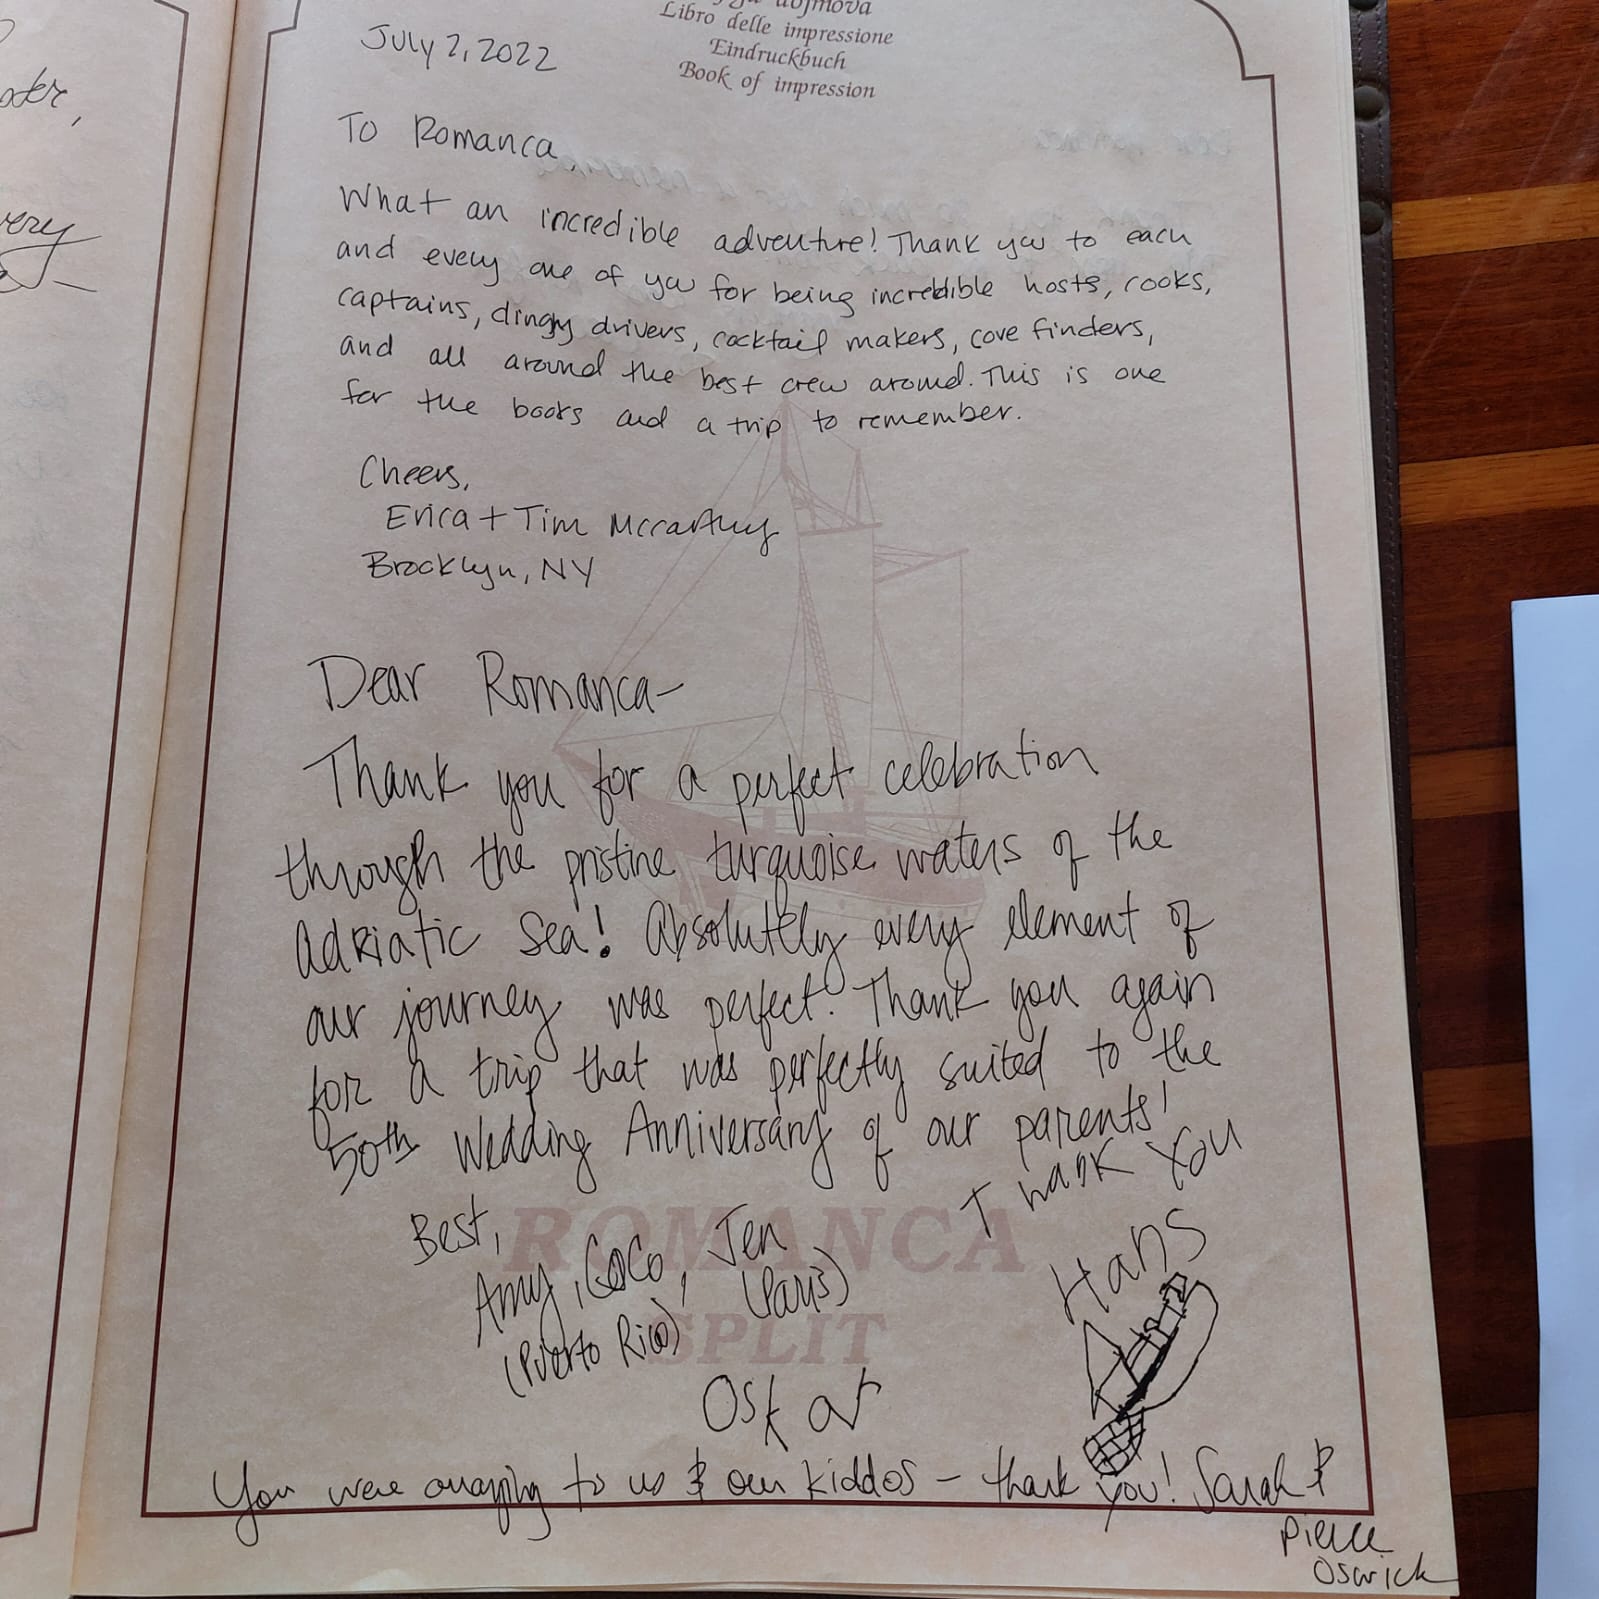 dojmova
Libro delle impressione
Eindruckbuch
Book of impression
July 2, 2022
To Romanca
What an incredible adventure! Thank you to each
and every one of you for being incredible hosts, cooks,
captains, dingy drivers, cocktail makers, cove finders,
and all around the best crew around. This is one
for the books and a trip to remember.
Cheers,
Erica + Tim McCarthy
Brooklyn, NY
Dear Romanca-
Thank you for a perfect celebration
through the pristine turquoise waters of the
Adriatic Sea! Absolutely every element of
our journey was perfect! Thank you again
for a trip that was perfectly suited to the
50th Wedding Anniversary of our parents!
Thank You
Best,
Amy, CoCo, Jen
(Puerto Rico) (Paris)
Hans
Oskar
ROMANCA
SPLIT
You were amazing to us & our kiddos - thank you! Sarah &
Pierce
Oswick